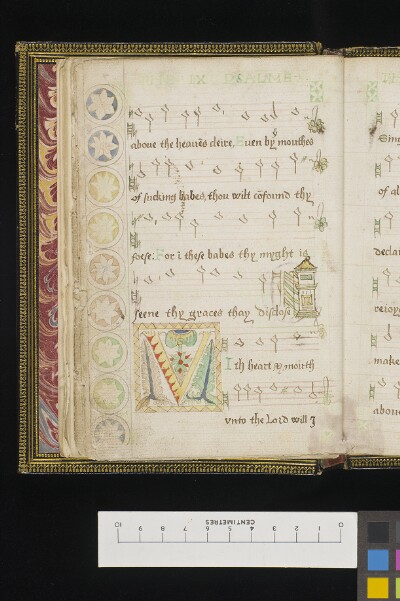 above the heauēs cleire, Euen by mouthes
of sucking babes, thou wilt cōfound thy
foese. For ī these babes thy myght is
seene thy graces thay disclose
With heart & mouth
vnto the Lord will I
Sing
of al
declar
reioy
make
abou
CENTIMETRES
10 9 8 7 6 5 4 3 2 1 0